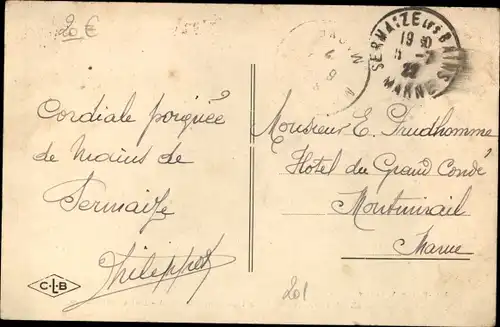 20 €
SERMAIZE LES BAINS
19 30
MARNE
Cordiale poignée
de mains de
Sermaize
Philippot
Monsieur E. Prudhomme
Hôtel du Grand Condé
Montmirail
Marne
C.L.B
201